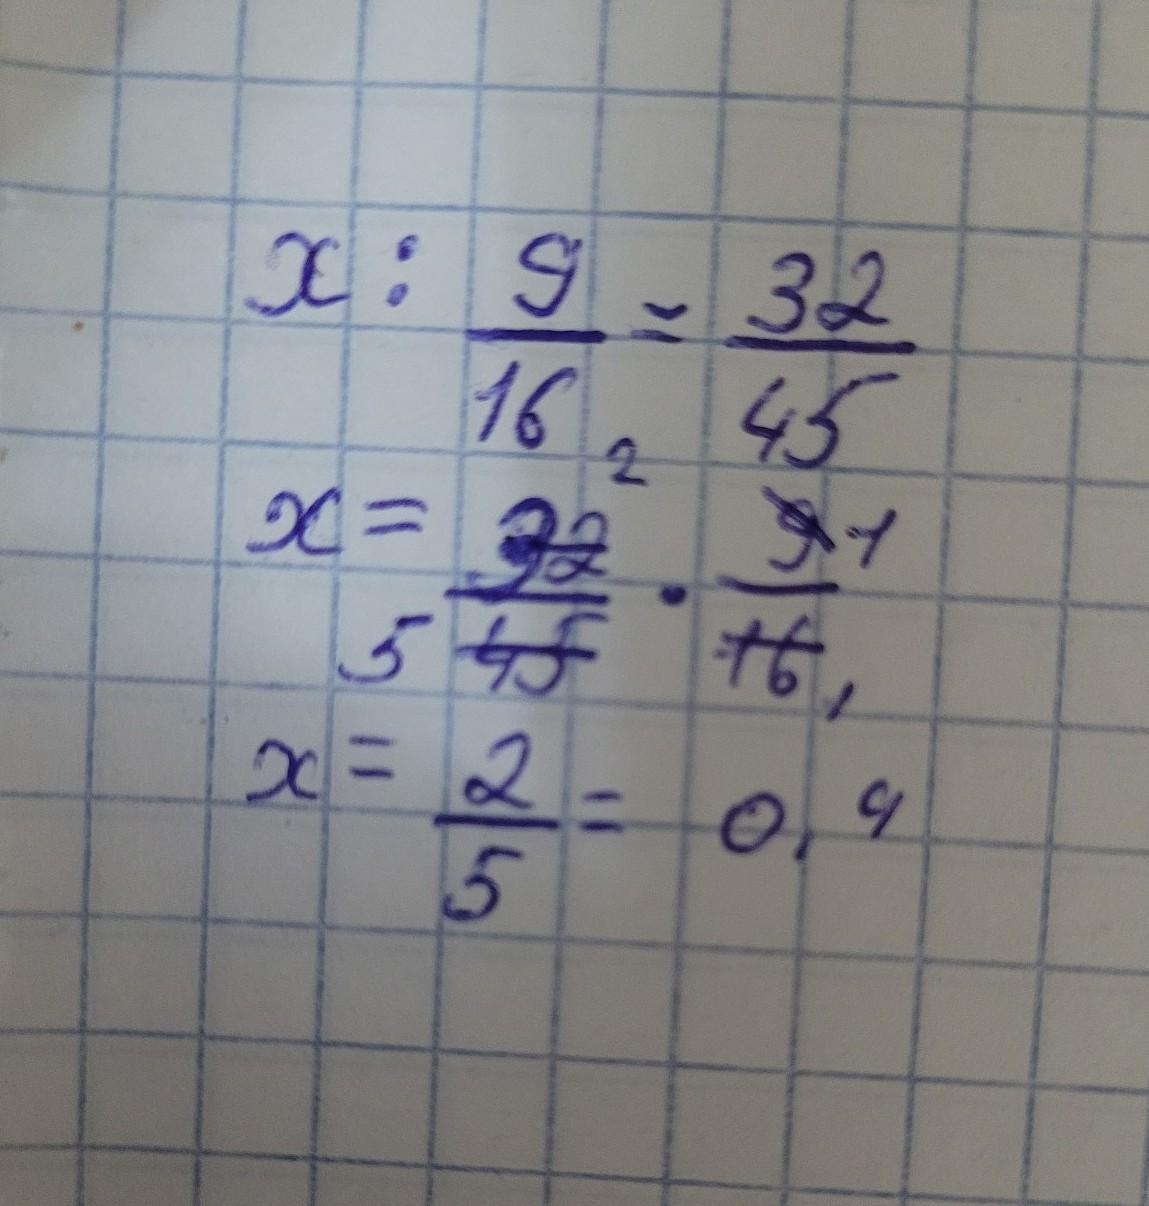 x : 9/16 = 32/45
x = 32 2/45 5 · 9 1/16 1
x = 2/5 = 0,4